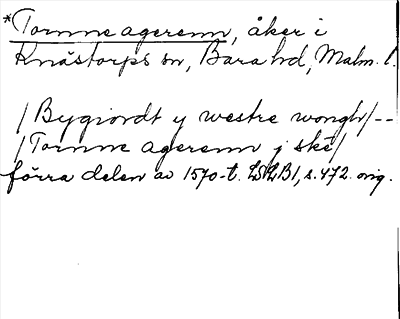 *Tornneagerenn, åker i
Knästorps sn, Bara hd, Malm. l.
/Bygiordt y westre wongh/--
/Tornne agerenn j ske/
förra delen av 1570-t. LSLB1, s. 472. orig.